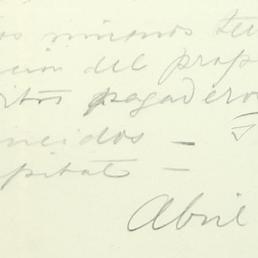 os mismos te
cion del prop
itos pagadero
encidos —
pital —
Abril